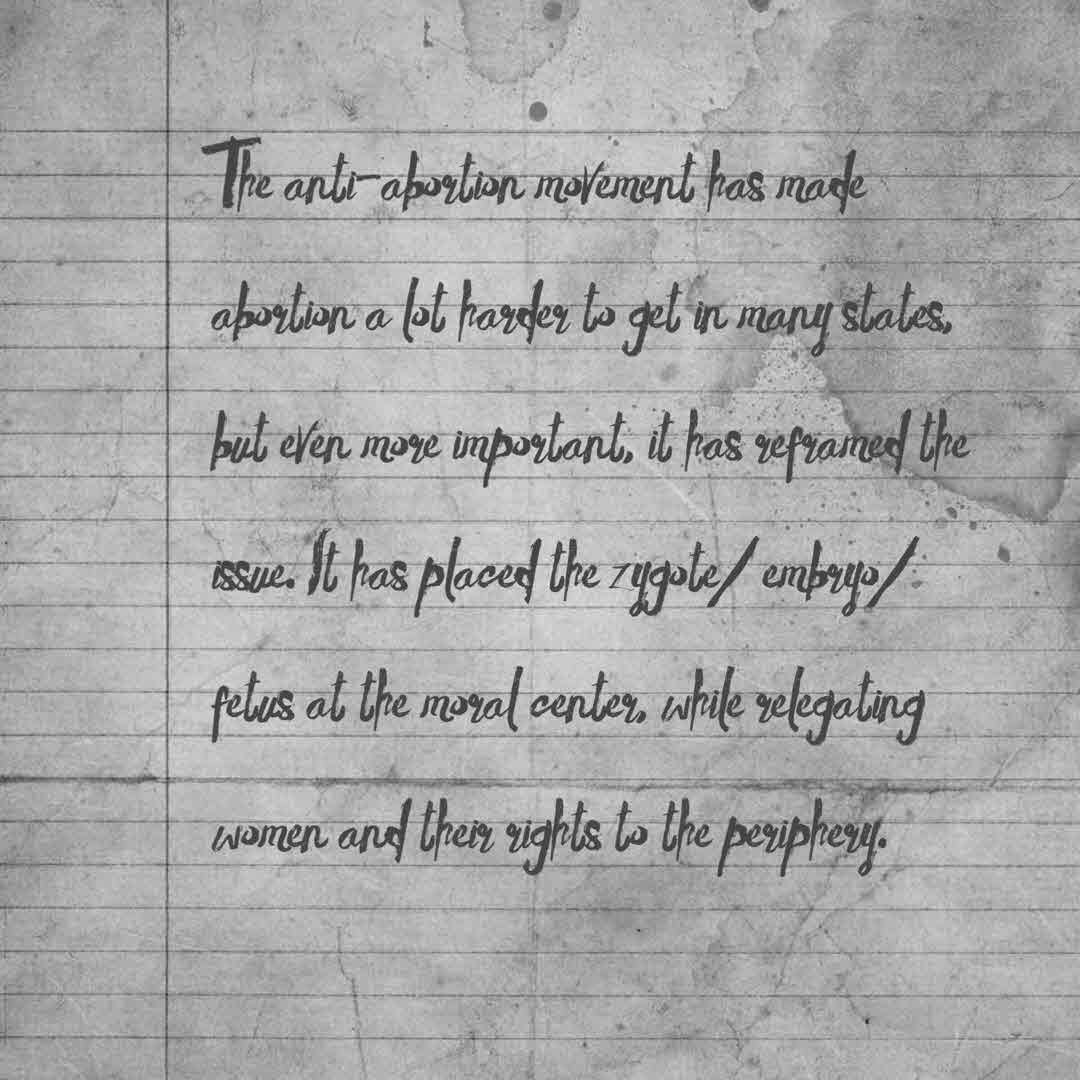 The anti-abortion movement has made
abortion a lot harder to get in many states,
but even more important, it has reframed the
issue. It has placed the zygote/ embryo/
fetus at the moral center, while relegating
women and their rights to the periphery.